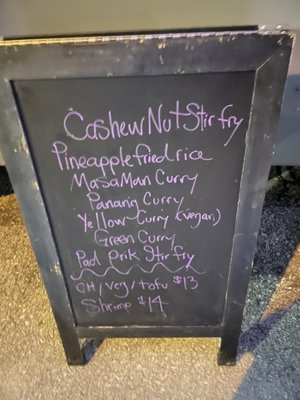 Cashew Nut Stir fry
Pineapple fried rice
MasaMan Curry
Panang Curry
Yellow Curry (vegan)
Green Curry
Pad Prik Stir fry
CH/veg/tofu $13
Shrimp $14